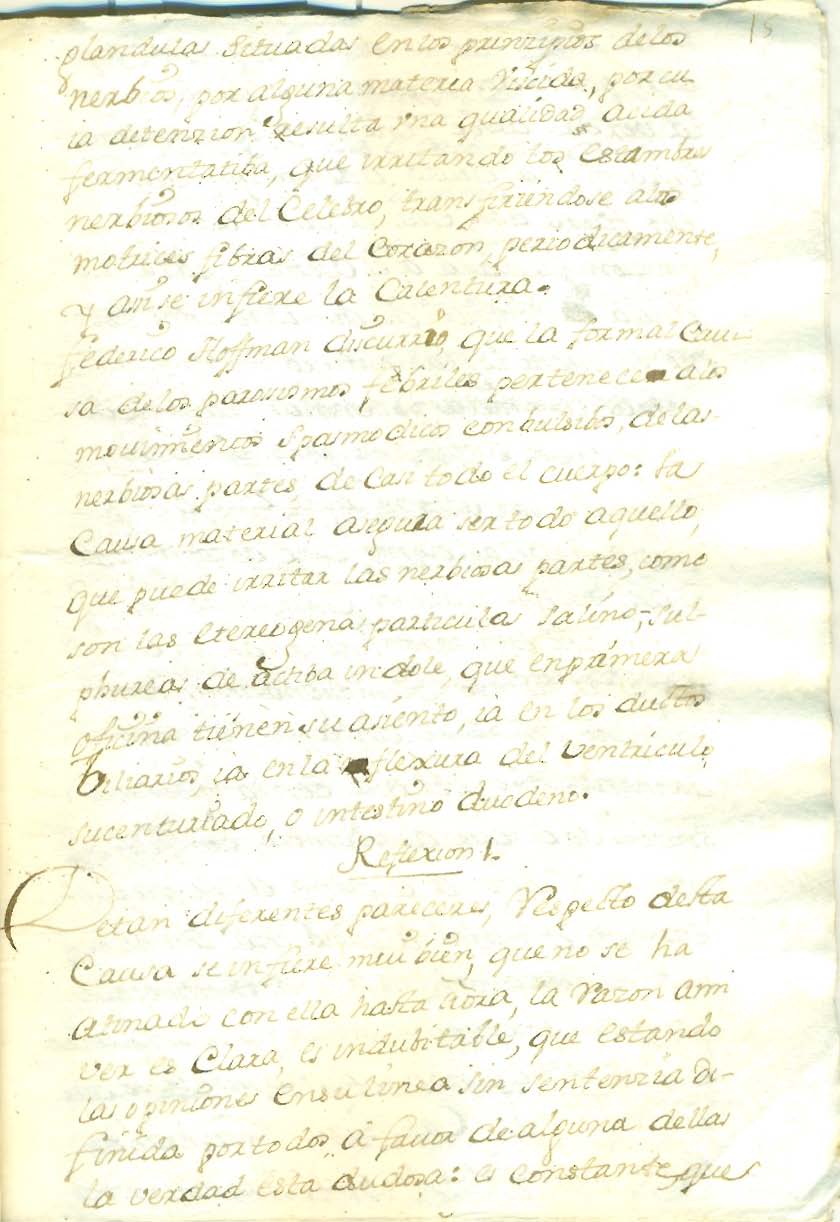 15
glandulas Situadas en los prinzipios de los
nerbios, por alguna materia viscida, por cu
ia detenzion resulta vna qualidad acida
fermentatiba, que irritando los Estambres
nerbiosos del Celebro, transfiriendose a las
motrices fibras del Corazon, periodicamente,
y assi se infiere la Calentura.
Federico Hoffman discurrio, que la formal Cau-
sa de los parosismos febriles pertenece a los
mouimientos Spasmodicos conbulsibos, de las
nerbiosas partes, de Casi todo el cuerpo: la
Causa material asegura ser todo aquello,
que puede irritar las nerbiosas partes, como
son las etereogenas particulas salino-sul-
phureas de actiba indole, que en primera
oficina tienen su asiento, ia en los ductos
biliarios, ia en la flexura del ventriculo
sucenturiado, o intestino duodeno.
Reflexion 1.
De tan diferentes pareceres, Respecto desta
Causa se infiere mui bien, que no se ha
atinado con ella hasta aora, la razon a mi
ver es Clara, es indubitable, que estando
las opiniones en su linea sin sentenzia di-
finida por todos a fauor de alguna dellas
la verdad esta dudosa: es constante, que